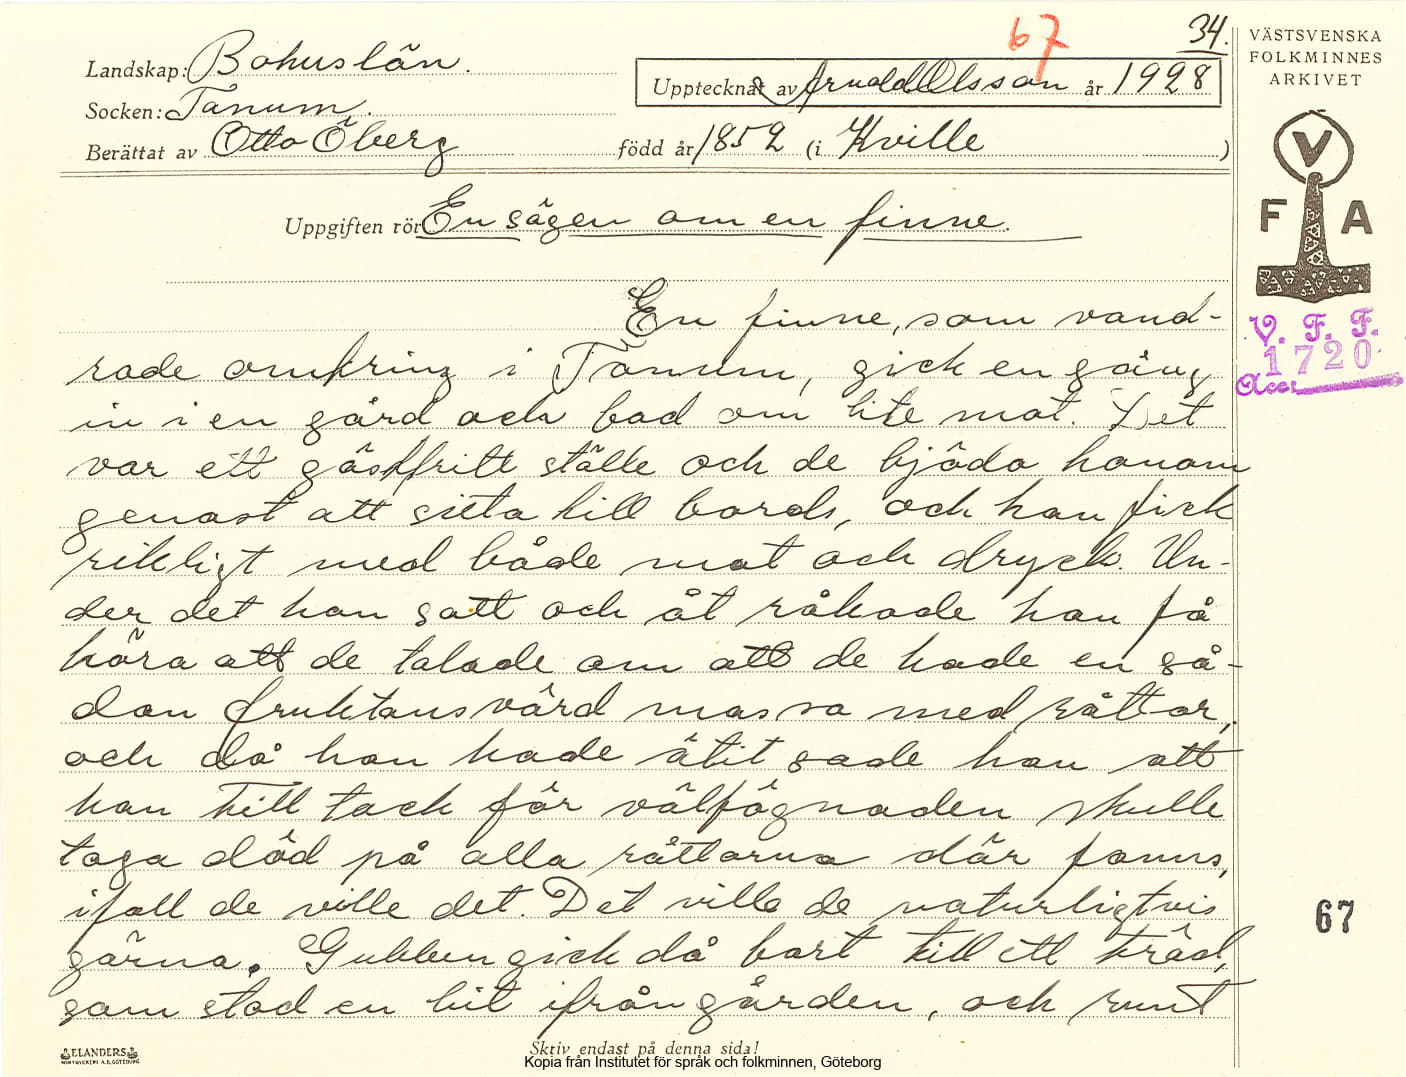 67
34.
Landskap: Bohuslän.
Upptecknat av Arnold Olsson år 1928
Socken: Tanum.
Berättat av Otto Öberg född år 1852 (i Kville)
Uppgiften rör En sägen om en finne.
En finne, som vand-
rade omkring i Tanum, gick en gång
in i en gård och bad om lite mat. Det
var ett gästfritt ställe och de bjödo honom
genast att sitta till bords, och han fick
rikligt med både mat och dryck. Un-
der det han satt och åt råkade han få
höra att de talade om att de hade en så-
dan fruktansvärd massa med råttor,
och då han hade ätit sade han att
han till tack för välfägnaden skulle
taga död på alla råttorna där fanns,
ifall de ville det. Det ville de naturligtvis
gärna. Gubben gick då bort till ett träd,
som stod en bit ifrån gården, och runt
VÄSTSVENSKA
FOLKMINNES
ARKIVET
V
F A
V. F. F.
1720
Acc:
67
ELANDERS
Skriv endast på denna sida!
Kopia från Institutet för språk och folkminnen, Göteborg